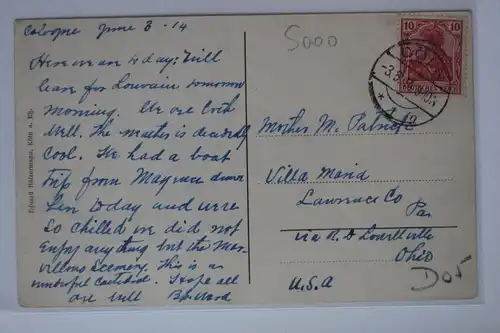 Cologne June 3 - 14
Here we are to day; Will
leave for Louvain tomorrow
morning. We are both
well. The weather is decidedly
cool. We had a boat
trip from Mayence down
here to day and were
so chilled we did not
enjoy anything but the mar-
vellous scenery. This is a
wonderful Cathedral. I hope all
are well
5000
10 10
CÖLN
Mother M. Patrick
Villa Maria
Lawrence Co
Pa
via R.D Lowellville
Ohio
U.S.A